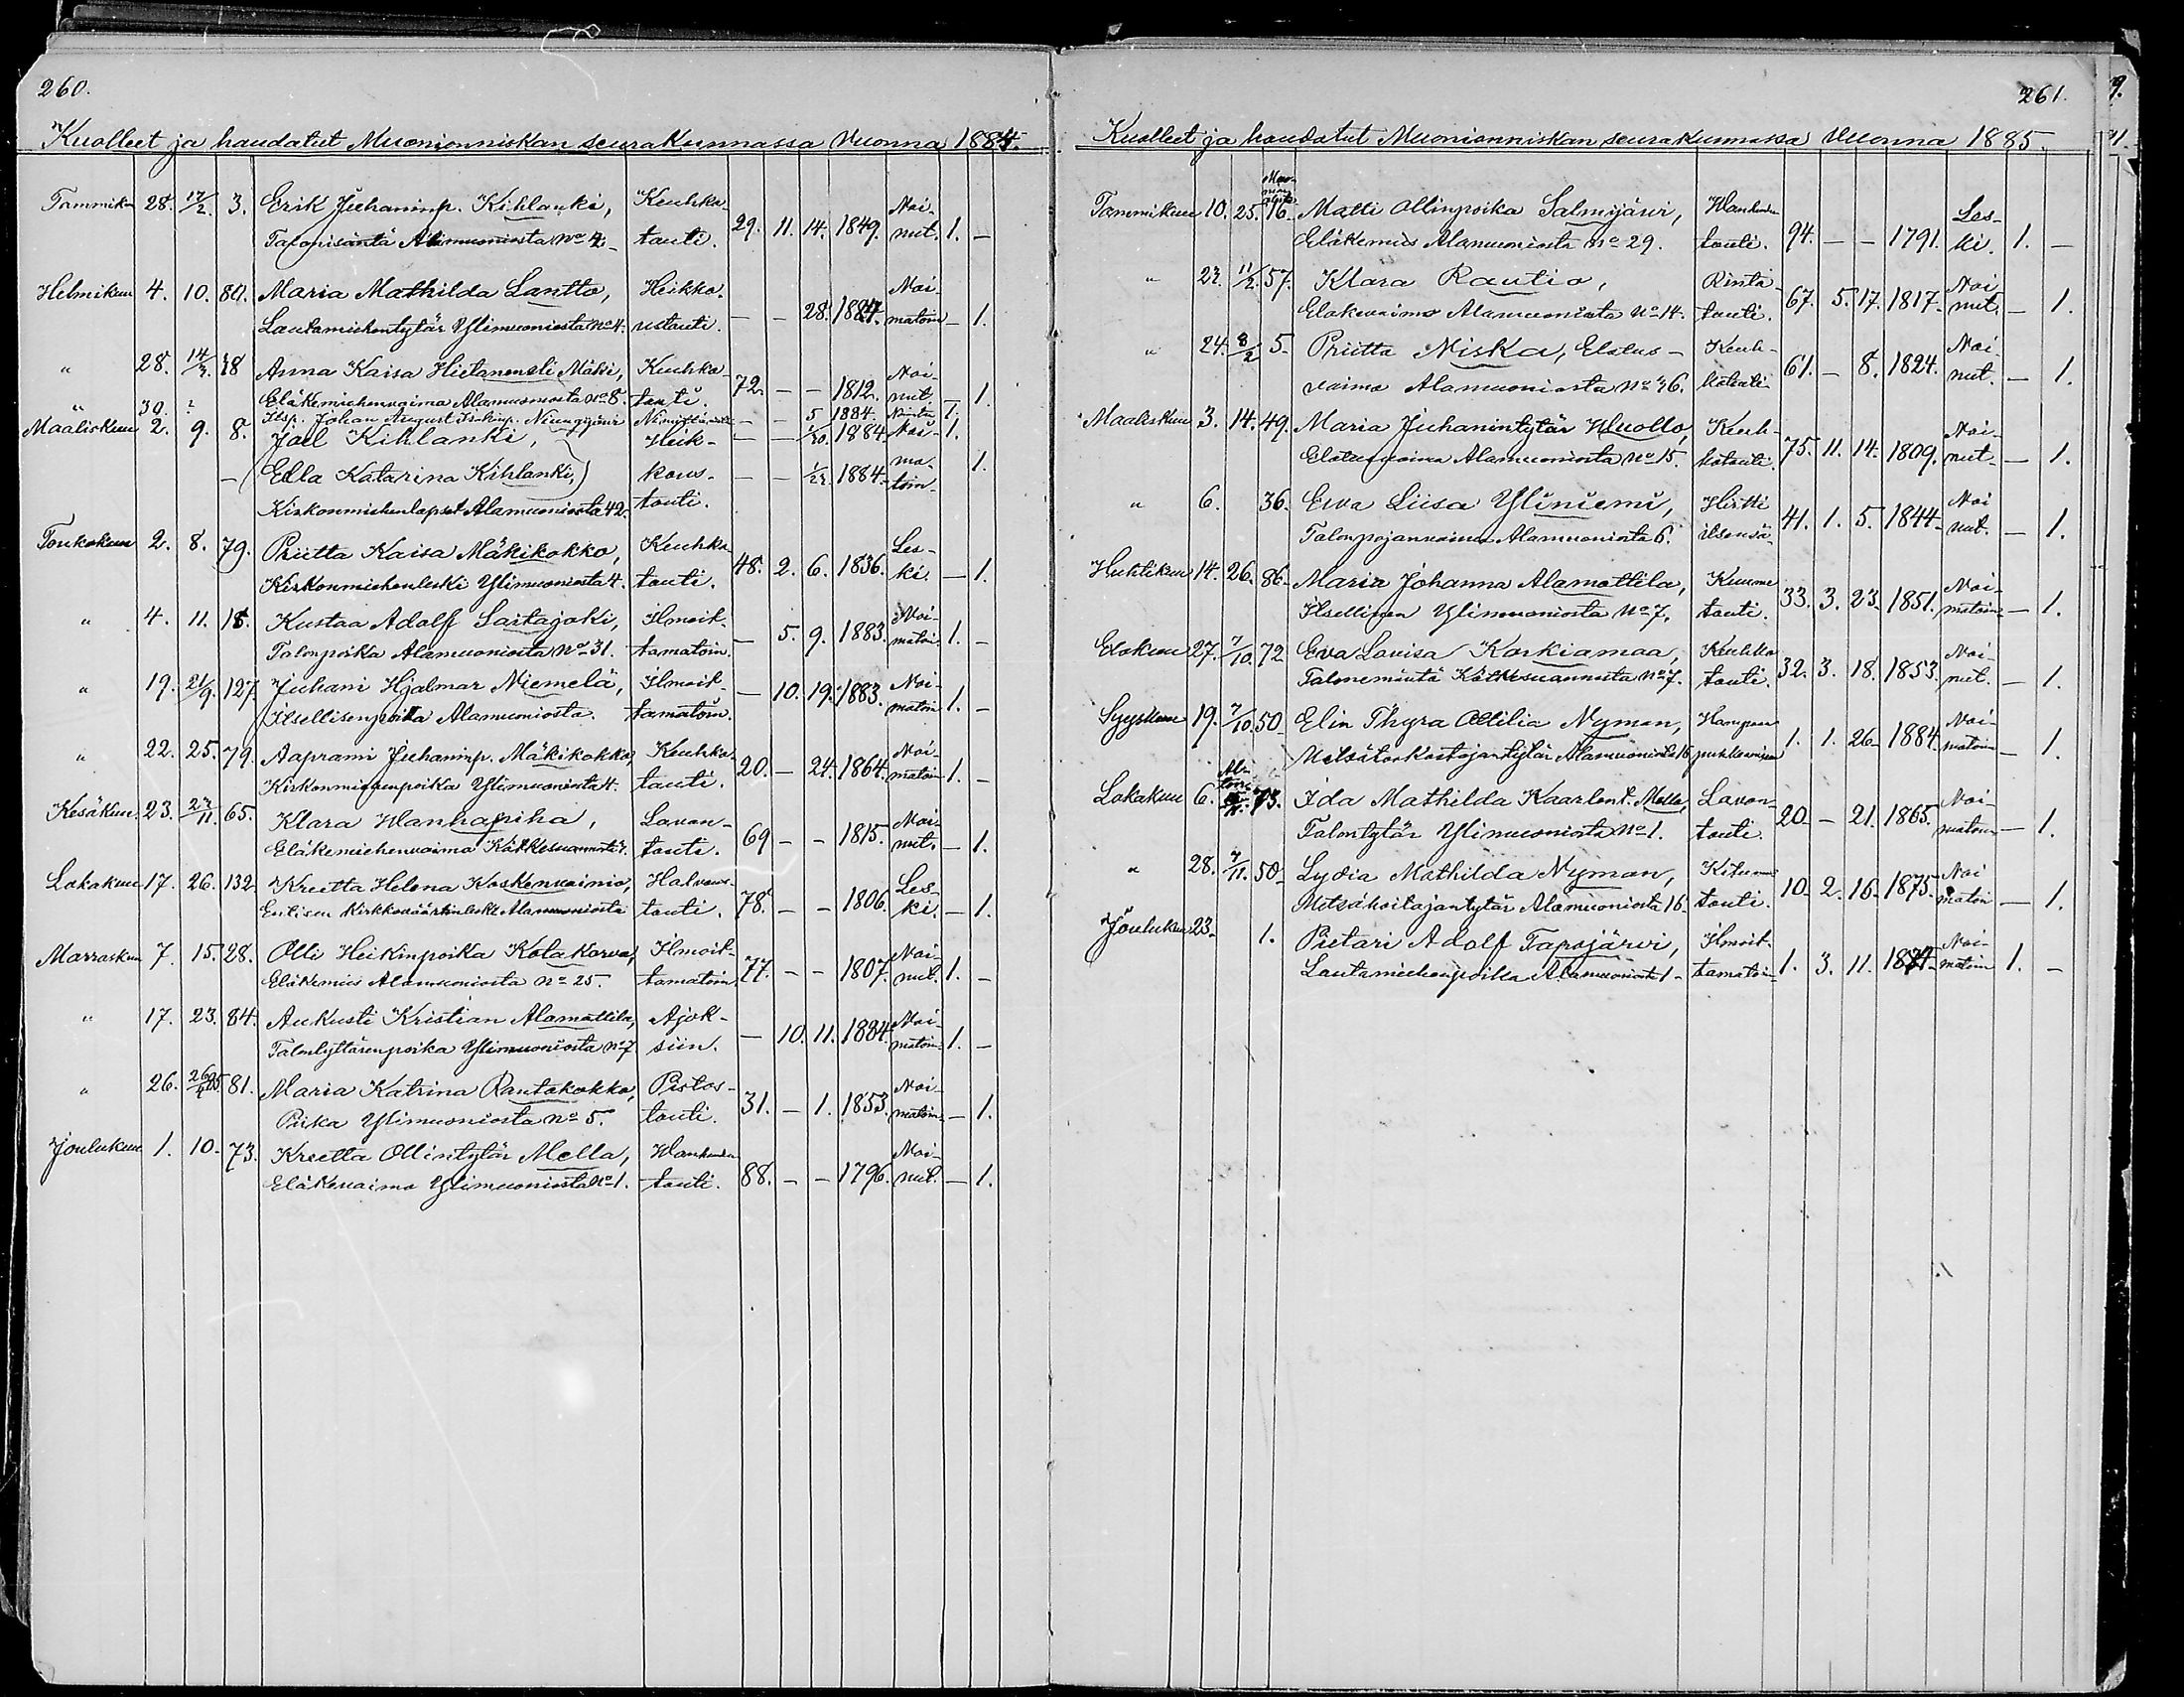 260.
Kuolleet ja haudatut Muonionniskan seurakunnassa Vuonna 1884.
Tammikuu 28. 17/2. 3. Erik Juhaninp. Kihlanki, Keuhko- 29. 11. 14. 1849. Nai- 1. —
Talonisäntä Alimuoniosta No 4. tauti. nut.
Helmikuu 4. 10. 80. Maria Mathilda Lantto, Heikko- — — 28. 1884. Nai- — 1.
Lautamiehentytär Ylimuoniosta No 4. ustauti. matoin
" 28. 14/3. 18 Anna Kaisa Hietanen eli Mäki, Keuhko- 72. — — 1812. Nai- — 1.
Eläkemiehenvaimo Alamuoniosta No 8. tauti. nut.
" 30. ? Itsp. Johan August Niungijärvi — — 5 1884. 1.
Maaliskuu 2. 9. 8. Joel Kihlanki, Heik- — — 1/20. 1884 Nai- 1.
— Ella Katarina Kihlanki, kous- — — 1/22. 1884. ma- 1.
Kirkonmiehenlapset Alamuoniosta 42. tauti. toin.
Toukokuu 2. 8. 79. Priitta Kaisa Mäkikokko, Keuhko- 48. 2. 6. 1836. Les- — 1.
Kirkonmiehenleski Ylimuoniosta 4. tauti. ki.
" 4. 11. 15. Kustaa Adolf Saitajoki, Ilmoit- — 5. 9. 1883. Nai- 1. —
Talonpoika Alamuoniosta No 31. tamatoin. matoin
" 19. 21/9. 127 Juhani Hjalmar Niemelä, Ilmoit- — 10. 19. 1883. Nai- 1. —
Itsellisenpoika Alamuoniosta. tamatoin. matoin
" 22. 25. 79. Aaprami Juhaninp. Mäkikokko, Keuhko- 20. — 24. 1864. Nai- 1. —
Kirkonmiehenpoika Ylimuoniosta 4. tauti. matoin
Kesäkuu 23. 23/11. 65. Klara Wanhapiha, Lavan- 69 — — 1815. Nai- — 1.
Eläkemiehenvaimo Kätkesuannosta 7. tauti. nut.
Lokakuu 17. 26. 132 Kreetta Helena Koskenvainio, Halvaus- 78. — — 1806. Les- — 1.
Entisen Kirkkoväärtinleski Alamuoniosta tauti. ki.
Marraskuu 7. 15. 28. Olli Heikinpoika Kolakorva, Ilmoit- 77. — — 1807. Nai- 1. —
Eläkemies Alamuoniosta No 25. tamatoin. nut.
" 17. 23. 84. Aukusti Kristian Alamattila, Ajok- — 10. 11. 1884. Nai- 1. —
Talontyttärenpoika Ylimuoniosta No 7 siin. matoin.
" 26. 81. Maria Katrina Rautakokko, Pistos- 31. — 1. 1853. Nai- — 1.
Piika Ylimuoniosta No 5. tauti. matoin.
Joulukuu 1. 10. 73. Kreetta Ollintytär Mella, Wanhuuden 88. — — 1796. Nai- — 1.
Eläkevaimo Ylimuoniosta No 1. tauti. nut.
261.
Kuolleet ja haudatut Muonionniskan seurakunnassa Vuonna 1885.
Tammikuu 10. 25. 16. Matti Ollinpoika Salmijärvi, Wanhuuden 94. — — 1791. Les- 1. —
Eläkemies Alamuoniosta No 29. tauti. ki.
" 23. 11/2. 57. Klara Rautio, Rinta- 67. 5. 17. 1817. Nai- — 1.
Eläkevaimo Alamuoniosta No 14. tauti. nut.
" 24. 8/2 5. Priitta Niska, Elatus- Keuh- 61. — 8. 1824. Nai- — 1.
vaimo Alamuoniosta No 36. kotauti. nut.
Maaliskuu 3. 14. 49. Maria Juhanintytär Wuollo, Keuh- 75. 11. 14. 1809. Nai- — 1.
Elatusvaimo Alamuoniosta No 15. kotauti. nut.
" 6. 36. Eeva Liisa Yliniemi, 41. 1. 5. 1844. Nai- — 1.
Talonpojanvaimo Alamuoniosta 6. nut.
Huhtikuu 14. 26. 86. Maria Johanna Alamattila, Kuume- 33. 3. 23. 1851. Nai- — 1.
Itsellinen Ylimuoniosta No 7. tauti. matoin
Elokuu 27. 7/10. 72 Eva Lovisa Korkiamaa, Keuhko- 32. 3. 18. 1853. Nai- — 1.
Talonemäntä Kätkesuannosta No 7. tauti. nut.
Syyskuu 19. 7/10. 50 Elin Thyra Ottilia Nyman, Hampaan 1. 1. 26. 1884. Nai- — 1.
Metsätarkastajantytär Alamuoniosta 16 puhkeamisen matoin
Lokakuu 6. 73. Ida Mathilda Kaarlont. Mella, Lavan- 20. — 21. 1865. Nai- — 1.
Talontytär Ylimuoniosta No 1. tauti. matoin
" 28. 7/11. 50. Lydia Mathilda Nyman, 10. 2. 16. 1875. Nai- — 1.
Metsähoitajantytär Alamuoniosta 16. tauti. matoin
Joulukuu 23. 1. Pietari Adolf Tapojärvi, Ilmoit- 1. 3. 11. 1884. Nai- 1. —
Lautamiehenpoika Alamuoniosta 1. tamatoin matoin